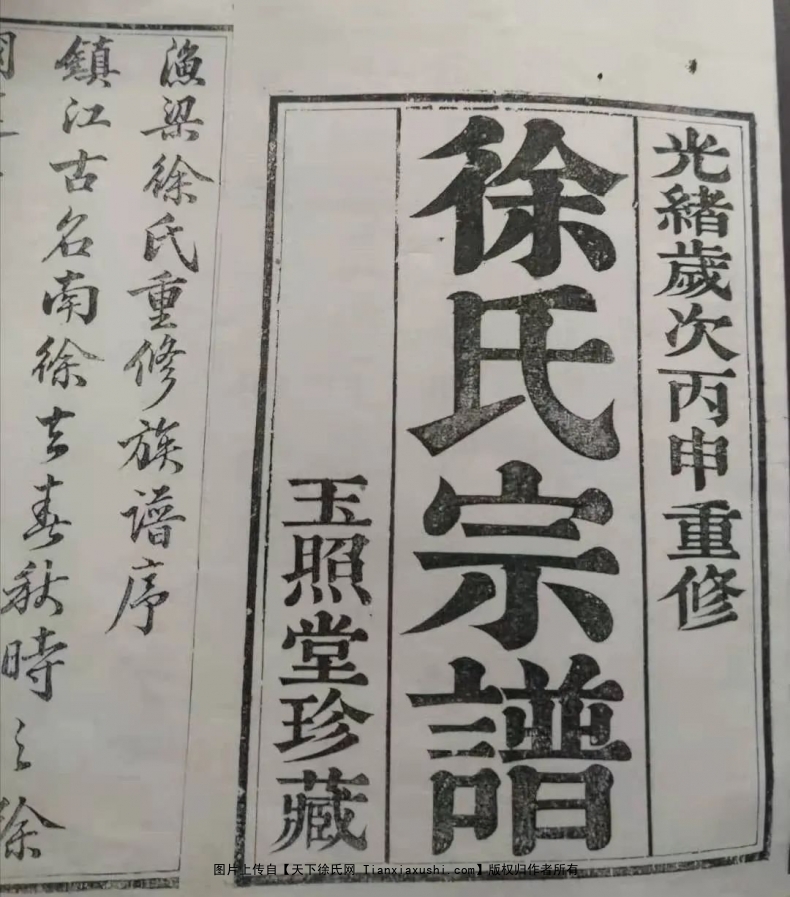 光緒歲次丙申重修
徐氏宗譜
玉照堂珍藏
漁梁徐氏重修族譜序
鎮江古名南徐去春秋時之徐
图片上传自【天下徐氏网 Tianxiaxushi.com】版权归作者所有